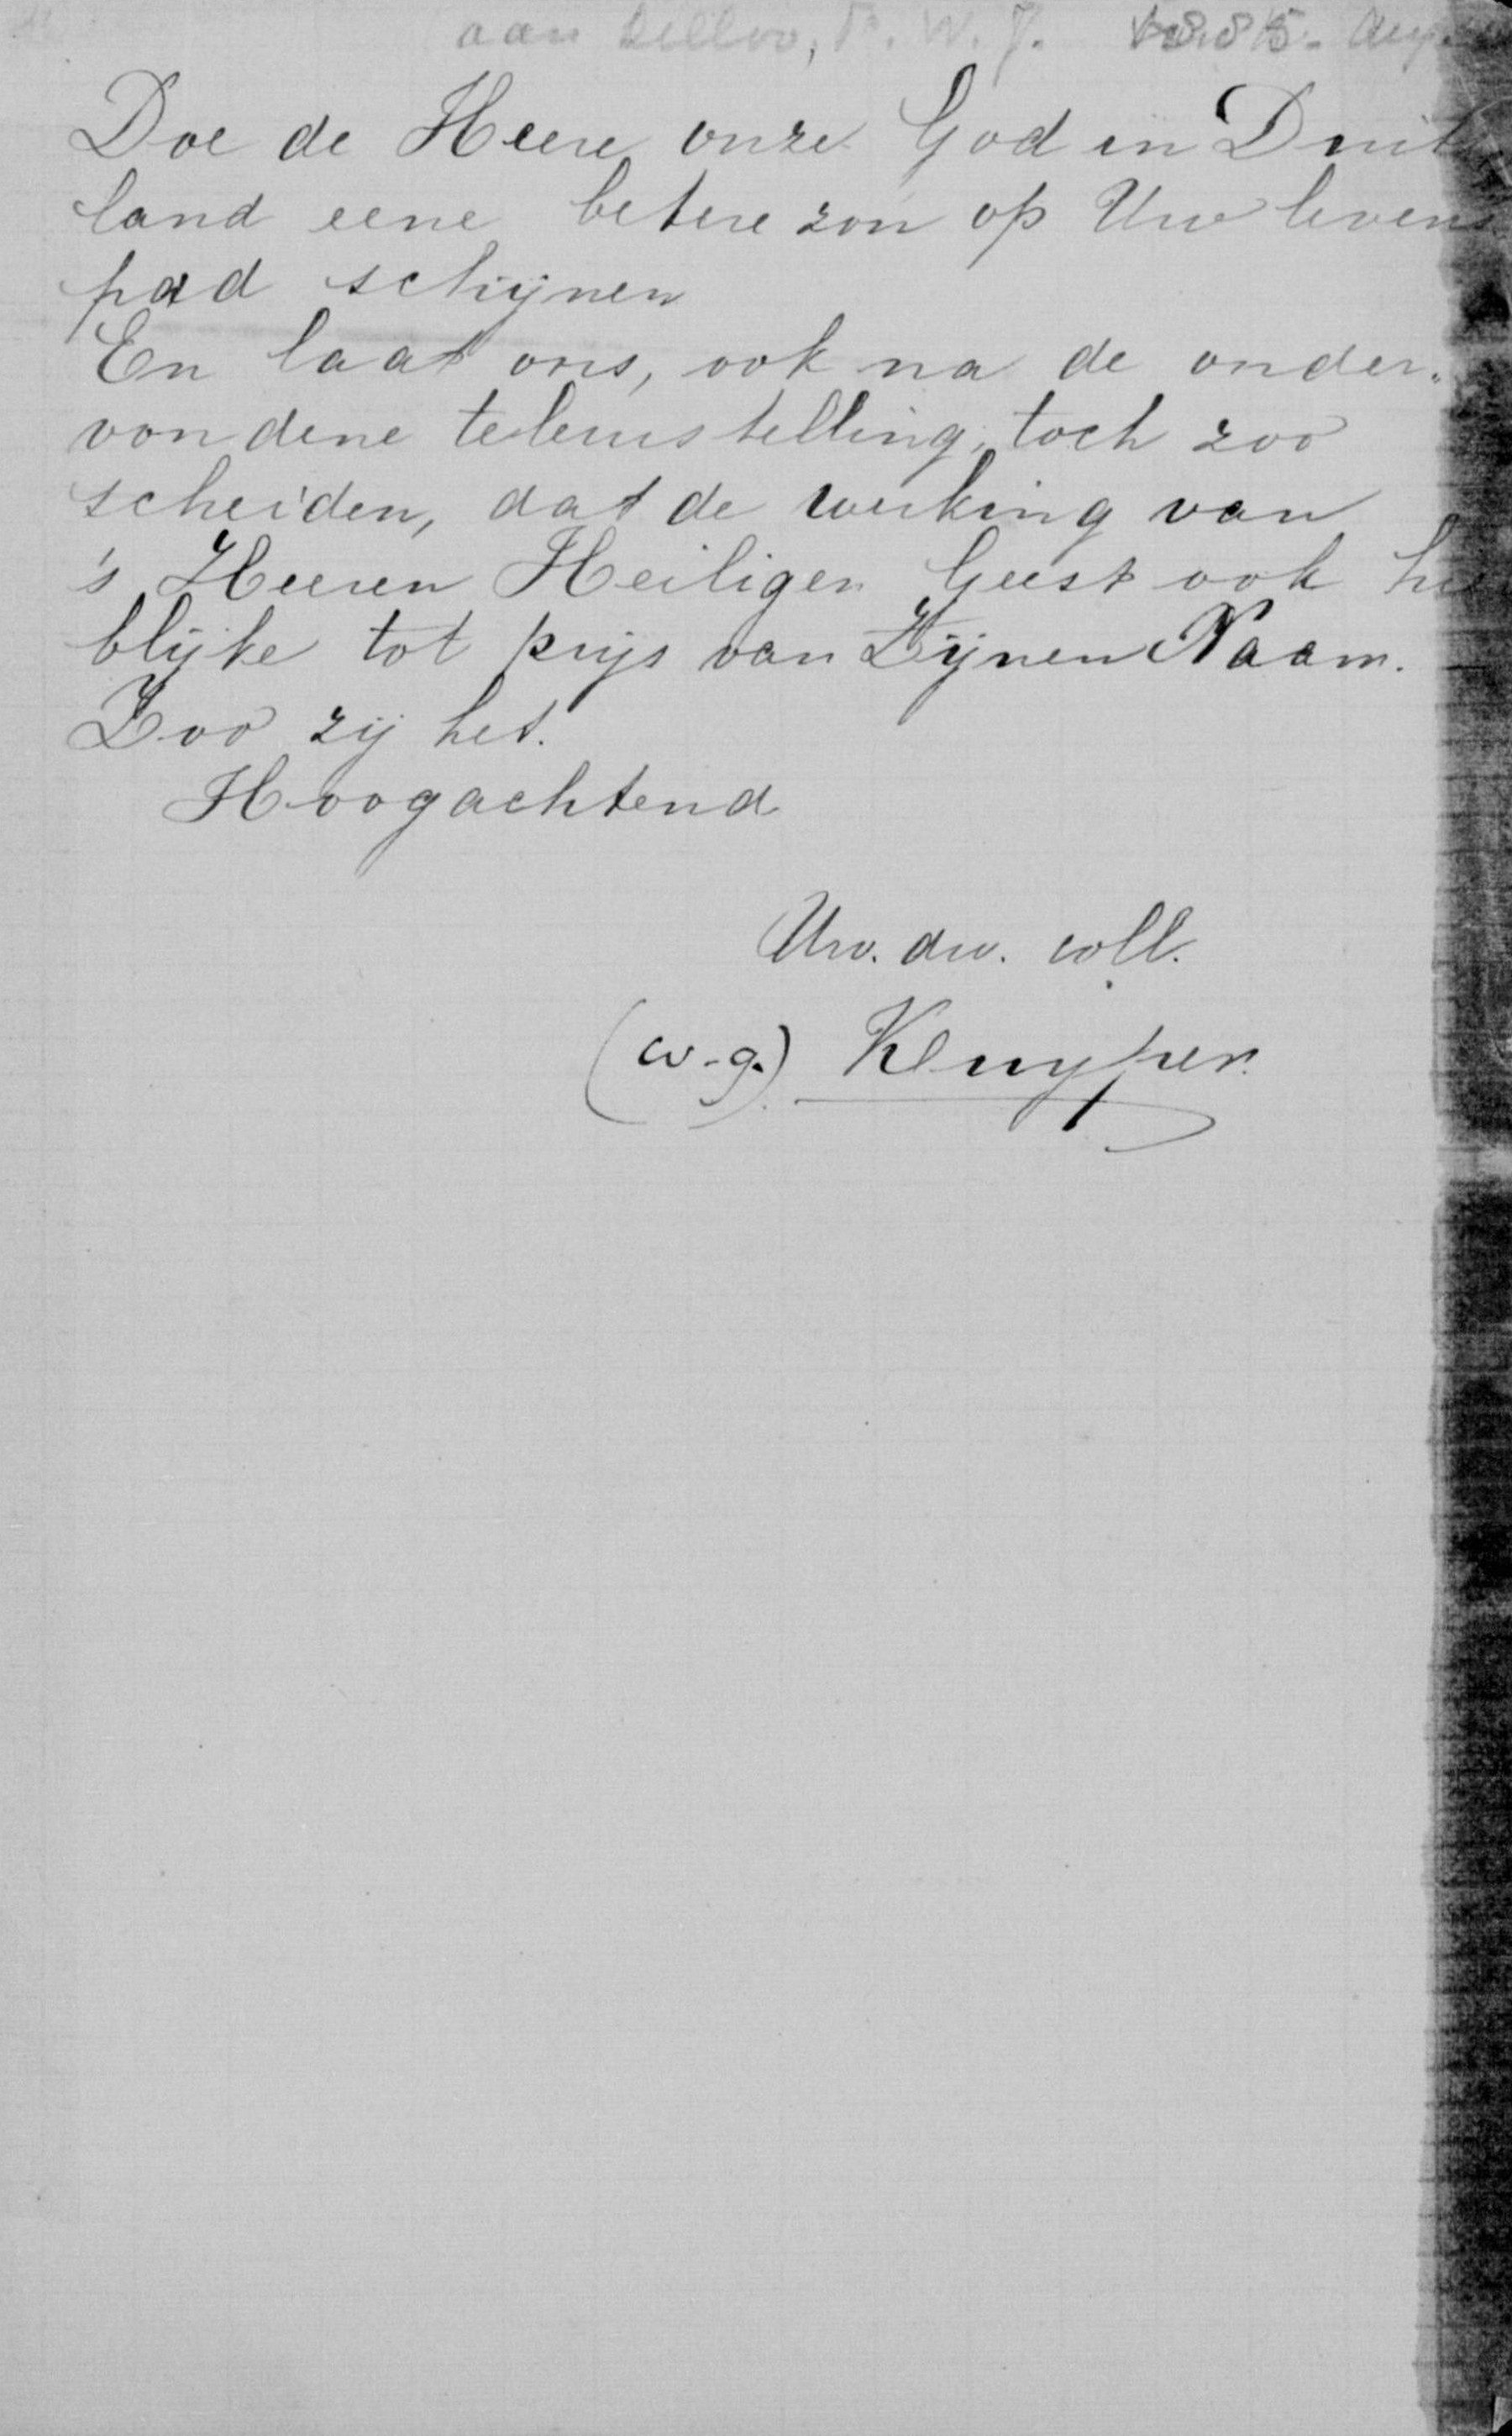 aan Dilloo, F. W. J. 1885. Aug.
Doe de Heere onze God in Duits
land eene betere zon op Uw levens
pad schijnen
En laat ons, ook na de onder-
vondene teleurstelling, toch zoo
scheiden, dat de werking van
's Heeren Heiligen Geest ook hie
blijke tot prijs van Zijnen Naam.
Zoo zij het.
Hoogachtend
Uw. dw. coll.
(w.g.) Kuyper.